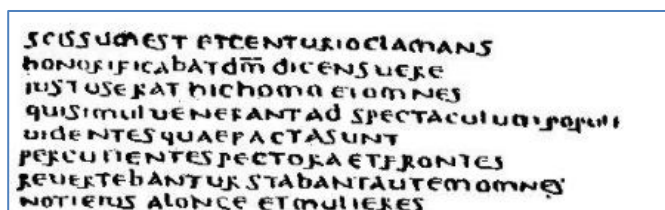 scissum est et centurio clamans
honorificabat dm̅ dicens uere
iustus erat hic homo et omnes
qui simul uenerant ad spectaculum populi
uidentes quae facta sunt
percutientes pectora et frontes
reuertebantur stabant autem omnes
noti eius a longe et mulieres